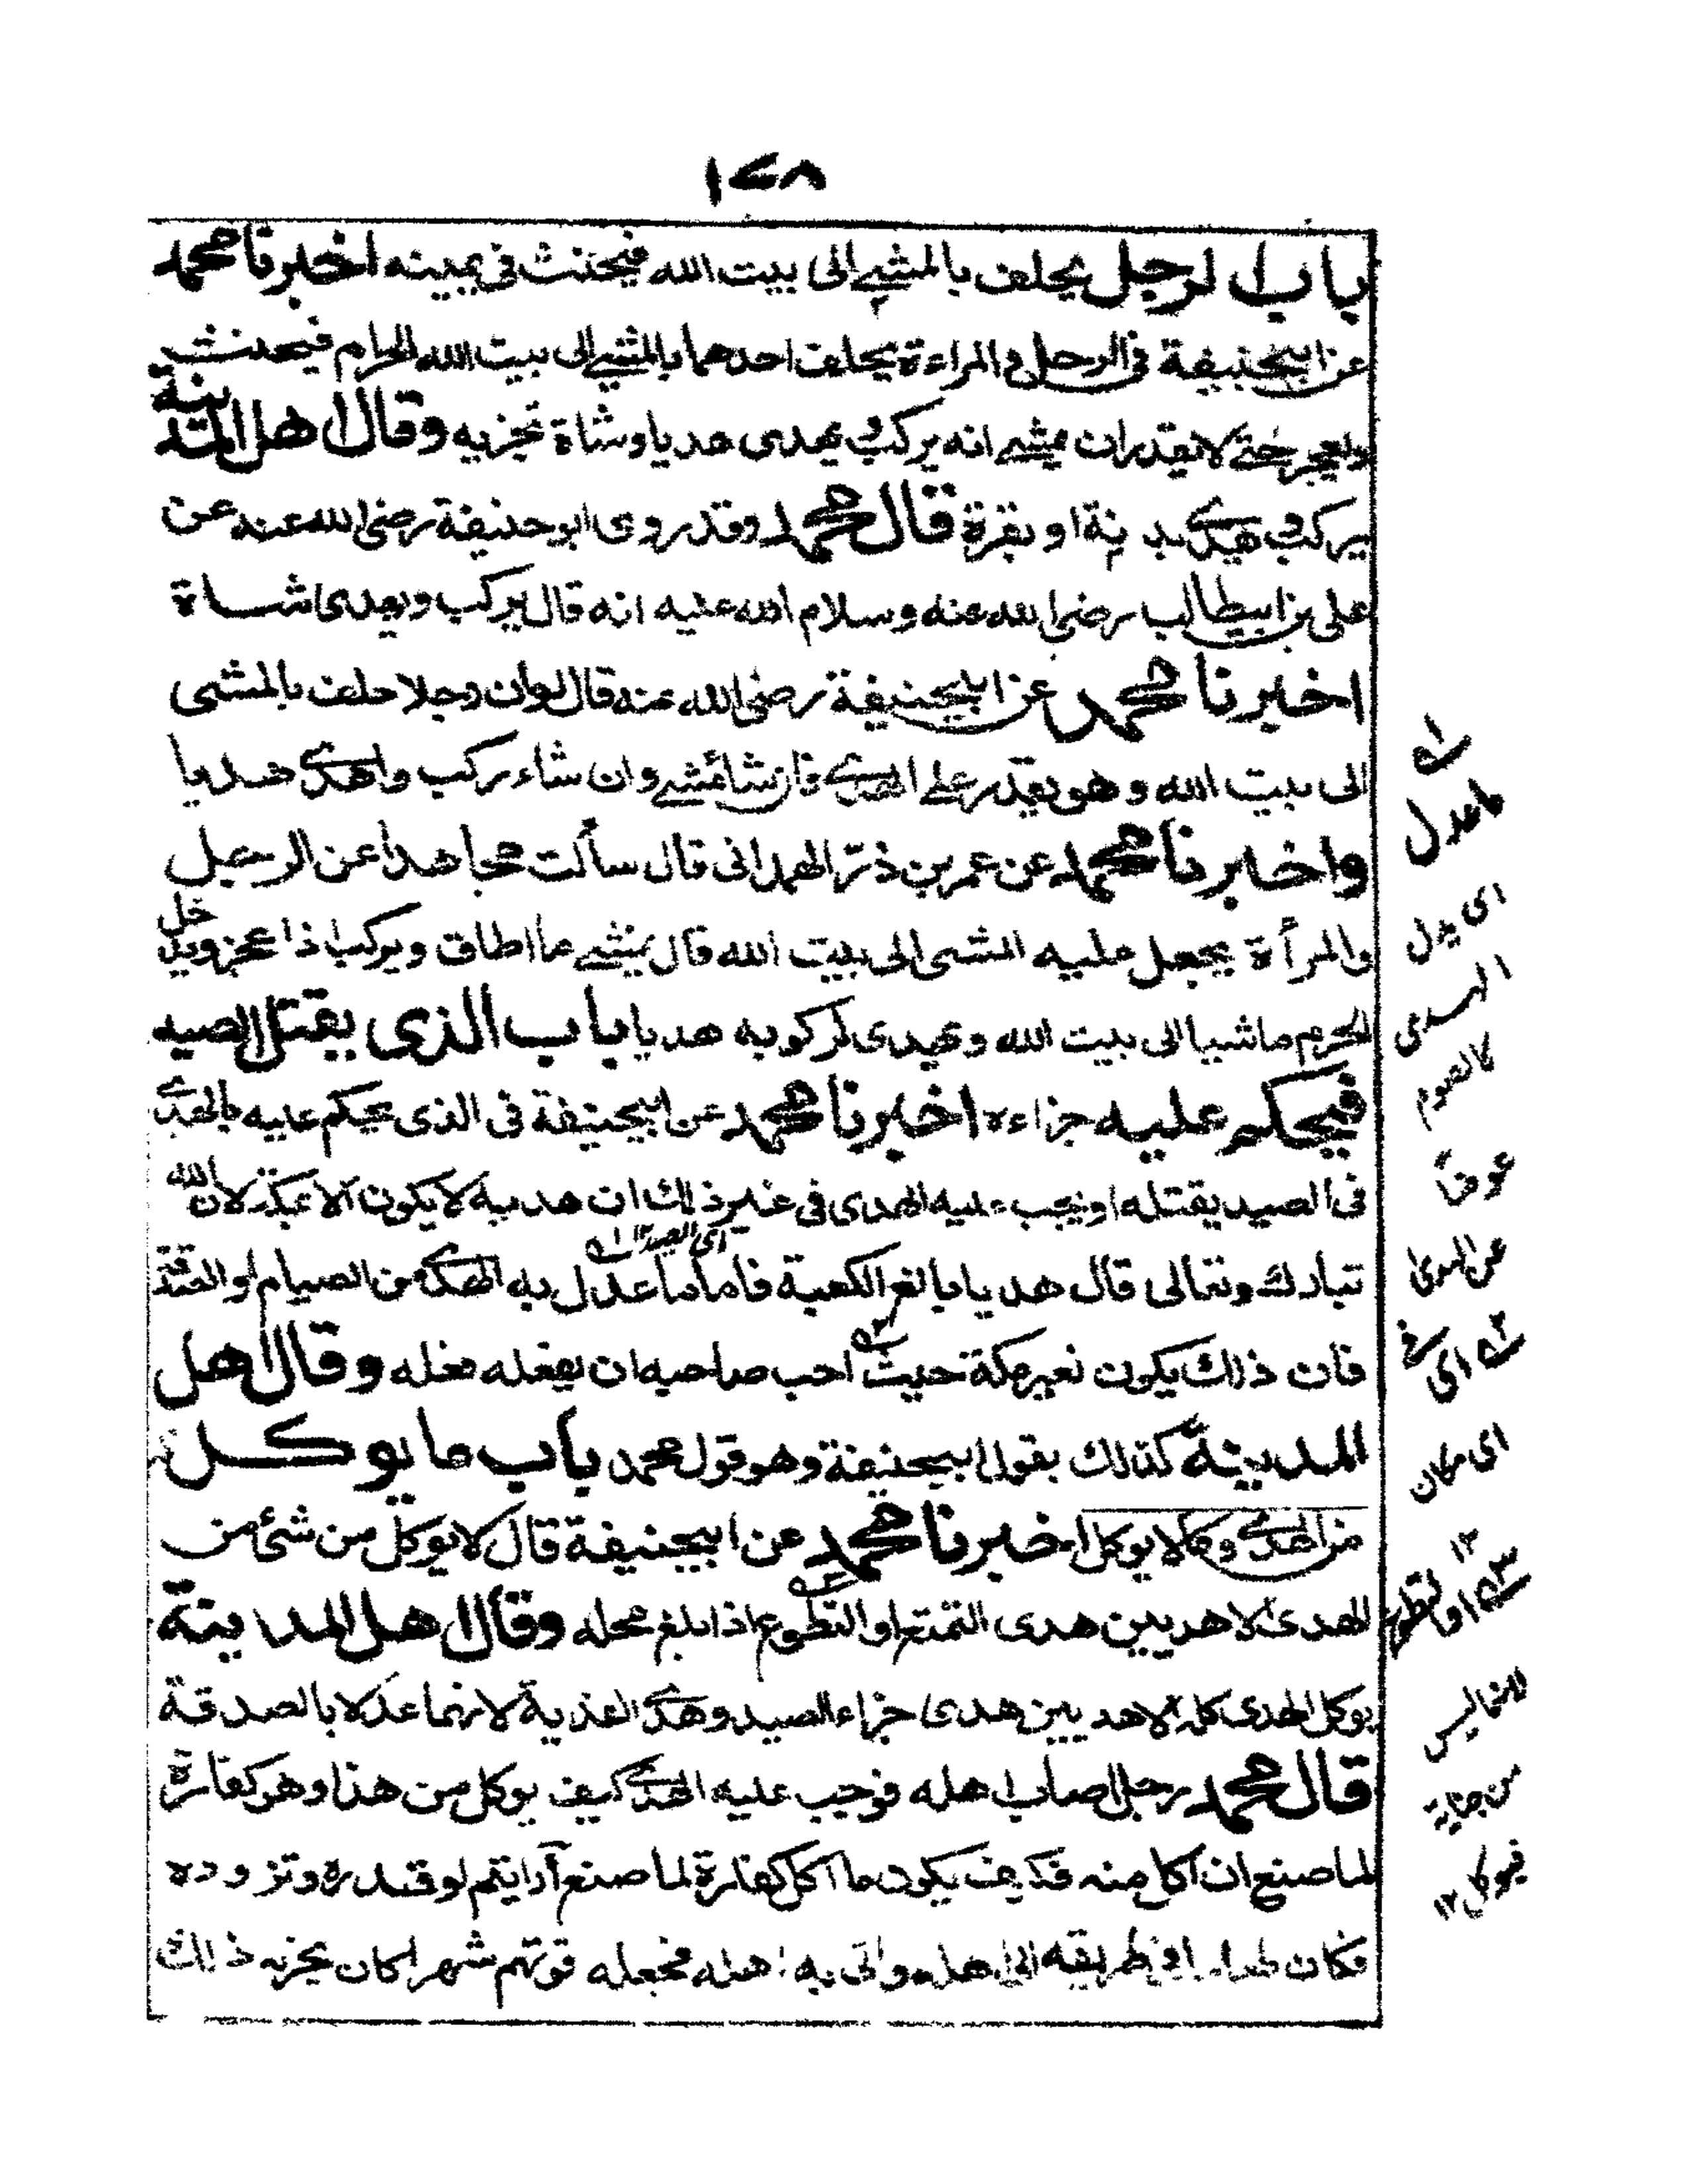 ١٤٨
باب الرجل يحلف بالمشي الى بيت الله فيحنث فى يمينه اخبرنا محمد
عن ابيحنيفة فى الرجل والمراءة يحلف احدهما بالمشي الى بيت الله الحرام فيحنث
ويعجز حتى لا يقدر ان يمشي انه يركب ويهدى هديا وشاة تجزيه وقال اهل المدينة
يركب ويهدي بدنة او بقرة قال محمد وقد روى ابو حنيفة رضى الله عنه عن
على بن ابيطالب رضى الله عنه وسلام الله عليه انه قال يركب ويهدى شاة
اخبرنا محمد عن ابيحنيفة رضى الله عنه قال لو ان رجلا حلف بالمشى
الى بيت الله وهو يقدر على الهدي فان شاء مشي وان شاء ركب واهدي هديا
واخبرنا محمد عن عمر بن ذرّ الهمدانى قال سألت مجاهدا عن الرجل
والمرأة يجعل عليه المشى الى بيت الله قال يمشي ما اطاق ويركب اذا عجز ويدخل
الحرم ماشيا الى بيت الله ويهدى لركوبه هديا باب الذى يقتل الصيد
فيحكم عليه جزاءه اخبرنا محمد عن ابيحنيفة فى الذى يحكم عليه بالهدي
فى الصيد يقتله او يجب عليه الهدى فى غير ذلك ان هديه لا يكون الا بمكة لان الله
تبارك وتعالى قال هديا بالغ الكعبة فاما ما عدل به الهدي من الصيام او الصدقة
اى الصيد ١٢
فان ذلك يكون بغير مكة حيث احب صاحبه ان يفعله فعله وقال اهل
المدينة كذلك بقول ابيحنيفة وهو قول محمد باب ما يوكل
من الهدي وما لا يوكل اخبرنا محمد عن ابيحنيفة قال لا يوكل من شئ من
الهدى الا هديين هدى التمتع او التطوع اذا بلغ محله وقال اهل المدينة
يوكل الهدى كله الا هديين هدى جزاء الصيد وهدي الفدية لانهما عدلا بالصدقة
قال محمد رجل اصاب اهله فوجب عليه الهدي كيف يوكل من هذا وهو كفارة
لما صنع ان اكل منه فكيف يكون ما اكل كفارة لما صنع أرايتم لو قدره وتزوده
فكان طعامه فى طريقه الى اهله واتى به اهله فجعله قوتهم شهرا كان يجزيه ذلك
ما عدل
اى بدل
الهدى
كالصوم
عوضا
عن الهدى
اى فى
اى مكان
١٢
او التطوع
فانما ليس
من جناية
فيوكل ١٢